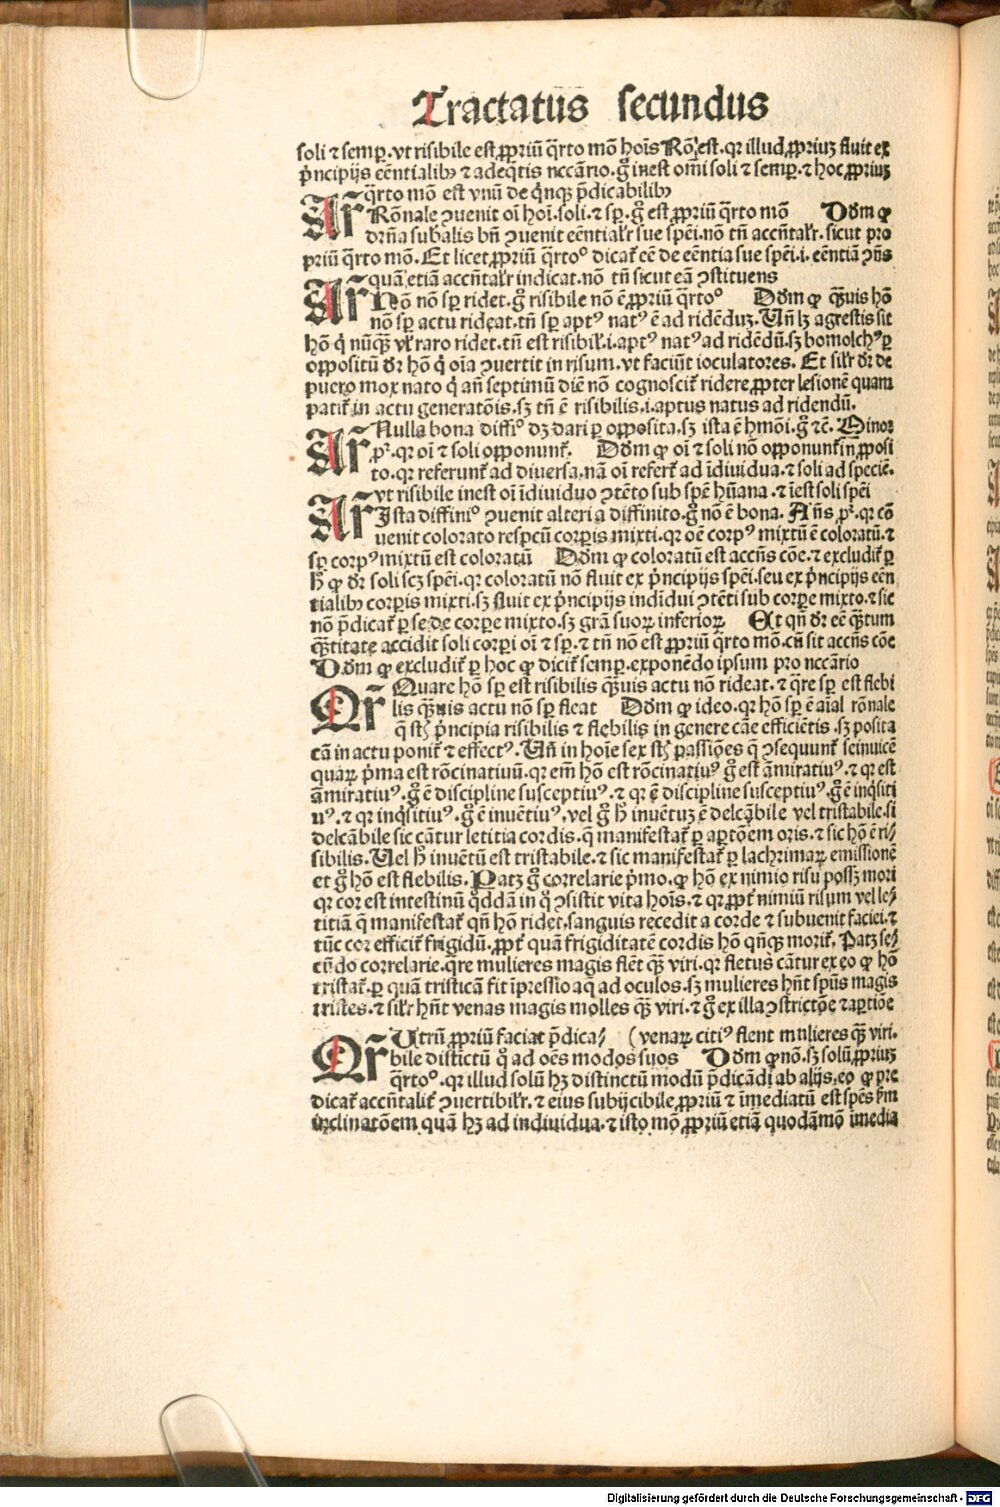 Tractatus secundus
soli ⁊ semp̲.vt risibile est ꝓpriū q̄rto mō hoīs Rō est.qꝛ illud ꝓpriuꝫ fluit ex
p̄ncipijs eēntialibꝰ ⁊ adeq̄tis nccārio.gͦ inest om̄i soli ⁊ semp̲.⁊ hoc ꝓpriuꝫ
q̄rto mō est vnū de q̄nqꝫ p̄dicabilibꝰ
Ar̄ Rōnale ꝯuenit oī hoī.soli.⁊ sp̲.gͦ est ꝓpriū q̄rto mō Dōm ꝙ
drn̄a subalis bn̄ ꝯuenit eēntialr̄ sue spēi.nō tn̄ accn̄talr̄.sicut pro
priū q̄rto mō.Et licet ꝓpriū q̄rtoͦ dicat̄ eē de eēntia sue spēi.i.eēntiā ꝯn̄s
Ar̄ quā etiā accn̄talr̄ indicat.nō tn̄ sicut eā ꝯstituens
Hō nō sp̲ ridet.gͦ risibile nō ē ꝓpriū q̄rtoͦ Dōm ꝙ qͣꝫuis hō
nō sp̲ actu rideat.tn̄ sp̲ aptꝰ natꝰ ē ad ridēduꝫ.Un̄ lꝫ agrestis sit
hō qͥ nūqͣꝫ vl̄ raro ridet.tn̄ est risibil̄.i.aptꝰ natꝰ ad ridēdū.sꝫ bomolchꝰ p̲
oppositū dr̄ hō qͥ oīa ꝯuertit in risum.vt faciūt ioculatores. Et silr̄ dr̄ de
puero mox nato qͥ an̄ septimū diē nō cognoscit̄ ridere ꝓpter lesionē quam
patit̄ in actu generatōis.sꝫ tn̄ ē risibilis.i.aptus natus ad ridendū.
Ar̄ Nulla bona diffiͦ dꝫ dari p̲ opposita.sꝫ ista ē hmōi.gͦ ⁊c̄. Minor
pꝫ.qꝛ oī ⁊ soli opponunt̄. Dōm ꝙ oī ⁊ soli nō opponunt̄ in pposi
to.qꝛ referunt̄ ad diuersa.nā oī refert̄ ad īdiuidua.⁊ soli ad speciē.
vt risibile inest oī īdiuiduo ꝯtēto sub spē hūana.⁊ īest soli spēi
Ar̄ Ista diffiniͦ ꝯuenit alteri a diffinito.gͦ nō ē bona. An̄s pꝫ.qꝛ cō
uenit colorato respcū corp̲is mixti.qꝛ oē corpꝰ mixtū ē coloratū.⁊
sp̲ corpꝰ mixtū est coloratū Dōm ꝙ coloratū est accn̄s cōe.⁊ excludit̄ p̲
hͦ ꝙ dr̄ soli scꝫ spēi.qꝛ coloratū nō fluit ex p̄ncipijs spēi.seu ex p̄ncipijs eēn
tialibꝰ corp̲is mixti.sꝫ fluit ex p̄ncipijs indīdui ꝯtēti sub corp̲e mixto.⁊ sic
nō p̄dicat̄ p̲ se de corp̲e mixto.sꝫ grā suoꝝ inferioꝝ Et qn̄ dr̄ eē qͣꝫtum
qͣꝫtitate accidit soli corp̲i oī ⁊ sp̲.⁊ tn̄ nō est ꝓpriū q̄rto mō.cū sit accn̄s cōe
Dōm ꝙ excludit̄ p̲ hoc ꝙ dicit̄ semp̲.exponēdo ipsum pro nccārio
Qr̄ Quare hō sp̲ est risibilis qͣꝫuis actu nō rideat.⁊ q̄re sp̲ est flebi
lis qͣꝫuis actu nō sp̲ fleat Dōm ꝙ ideo.qꝛ hō sp̲ ē aīal rōnale
q̄ st̄ p̄ncipia risibilis ⁊ flebilis in genere cāe efficiētis.sꝫ posita
cā in actu ponit̄ ⁊ effectꝰ.Un̄ in hoīe sex st̄ passiōes q̄ ꝯsequunt̄ seinuicē
quaꝝ p̄ma est rōcinatiuū.qꝛ em̄ hō est rōcinatiuꝰ gͦ est āmiratiuꝰ.⁊ qꝛ est
āmiratiuꝰ.gͦ ē discipline susceptiuꝰ.⁊ qꝛ ē discipline susceptiuꝰ.gͦ ē inq̄siti
uꝰ.⁊ qꝛ inq̄sitiuꝰ.gͦ ē inuētiuꝰ.vel gͦ hͦ inuētuꝫ ē delcābile vel tristabile.si
delcābile sic cātur letitia cordis.q̄ manifestat̄ p̲ ap̲tōem oris.⁊ sic hō ē ri⸗
sibilis.Uel hͦ inuētū est tristabile.⁊ sic manifestat̄ p̲ lachrimaꝝ emissionē
et gͦ hō est flebilis.Patꝫ gͦ correlarie p̄mo.ꝙ hō ex nimio risu possꝫ mori
qꝛ cor est intestinū qͦddā in qͦ ꝯsistit vita hoīs.⁊ qꝛ ꝓpt̄ nimiū risum vel le⸗
titiā q̄ manifestat̄ qn̄ hō ridet.sanguis recedit a corde ⁊ subuenit faciei.⁊
tūc cor efficit̄ frigidū.ꝓpt̄ quā frigiditatē cordis hō qn̄qꝫ morit̄.Patꝫ se⸗
cūdo correlarie.q̄re mulieres magis flēt qͣꝫ viri.qꝛ fletus cātur ex eo ꝙ hō
tristat̄.p̲ quā tristicā fit īpressio aq̄ ad oculos.sꝫ mulieres hn̄t spūs magis
tristes.⁊ silr̄ hn̄t venas magis molles qͣꝫ viri.⁊ gͦ ex illa ꝯstrictōe ⁊ ap̲tiōe
Qr̄ Utrū ꝓpriū faciat p̄dica⸗ (venaꝝ citiꝰ flent mulieres qͣꝫ viri.
bile distictū qͦ ad oēs modos suos Dōm ꝙ nō.sꝫ solū ꝓpriuꝫ
q̄rtoͦ.qꝛ illud solū hꝫ distinctū modū p̄dicādi ab alijs.eo ꝙ pre
dicat̄ accn̄talit̄ ꝯuertibilr̄.⁊ eius subijcibile ꝓpriū ⁊ īmediatū est spēs p̄m
inclinatōem quā hꝫ ad indiuidua.⁊ isto mō ꝓpriū etiā quodāmō īmedia
Digitalisierung gefördert durch die Deutsche Forschungsgemeinschaft - DFG